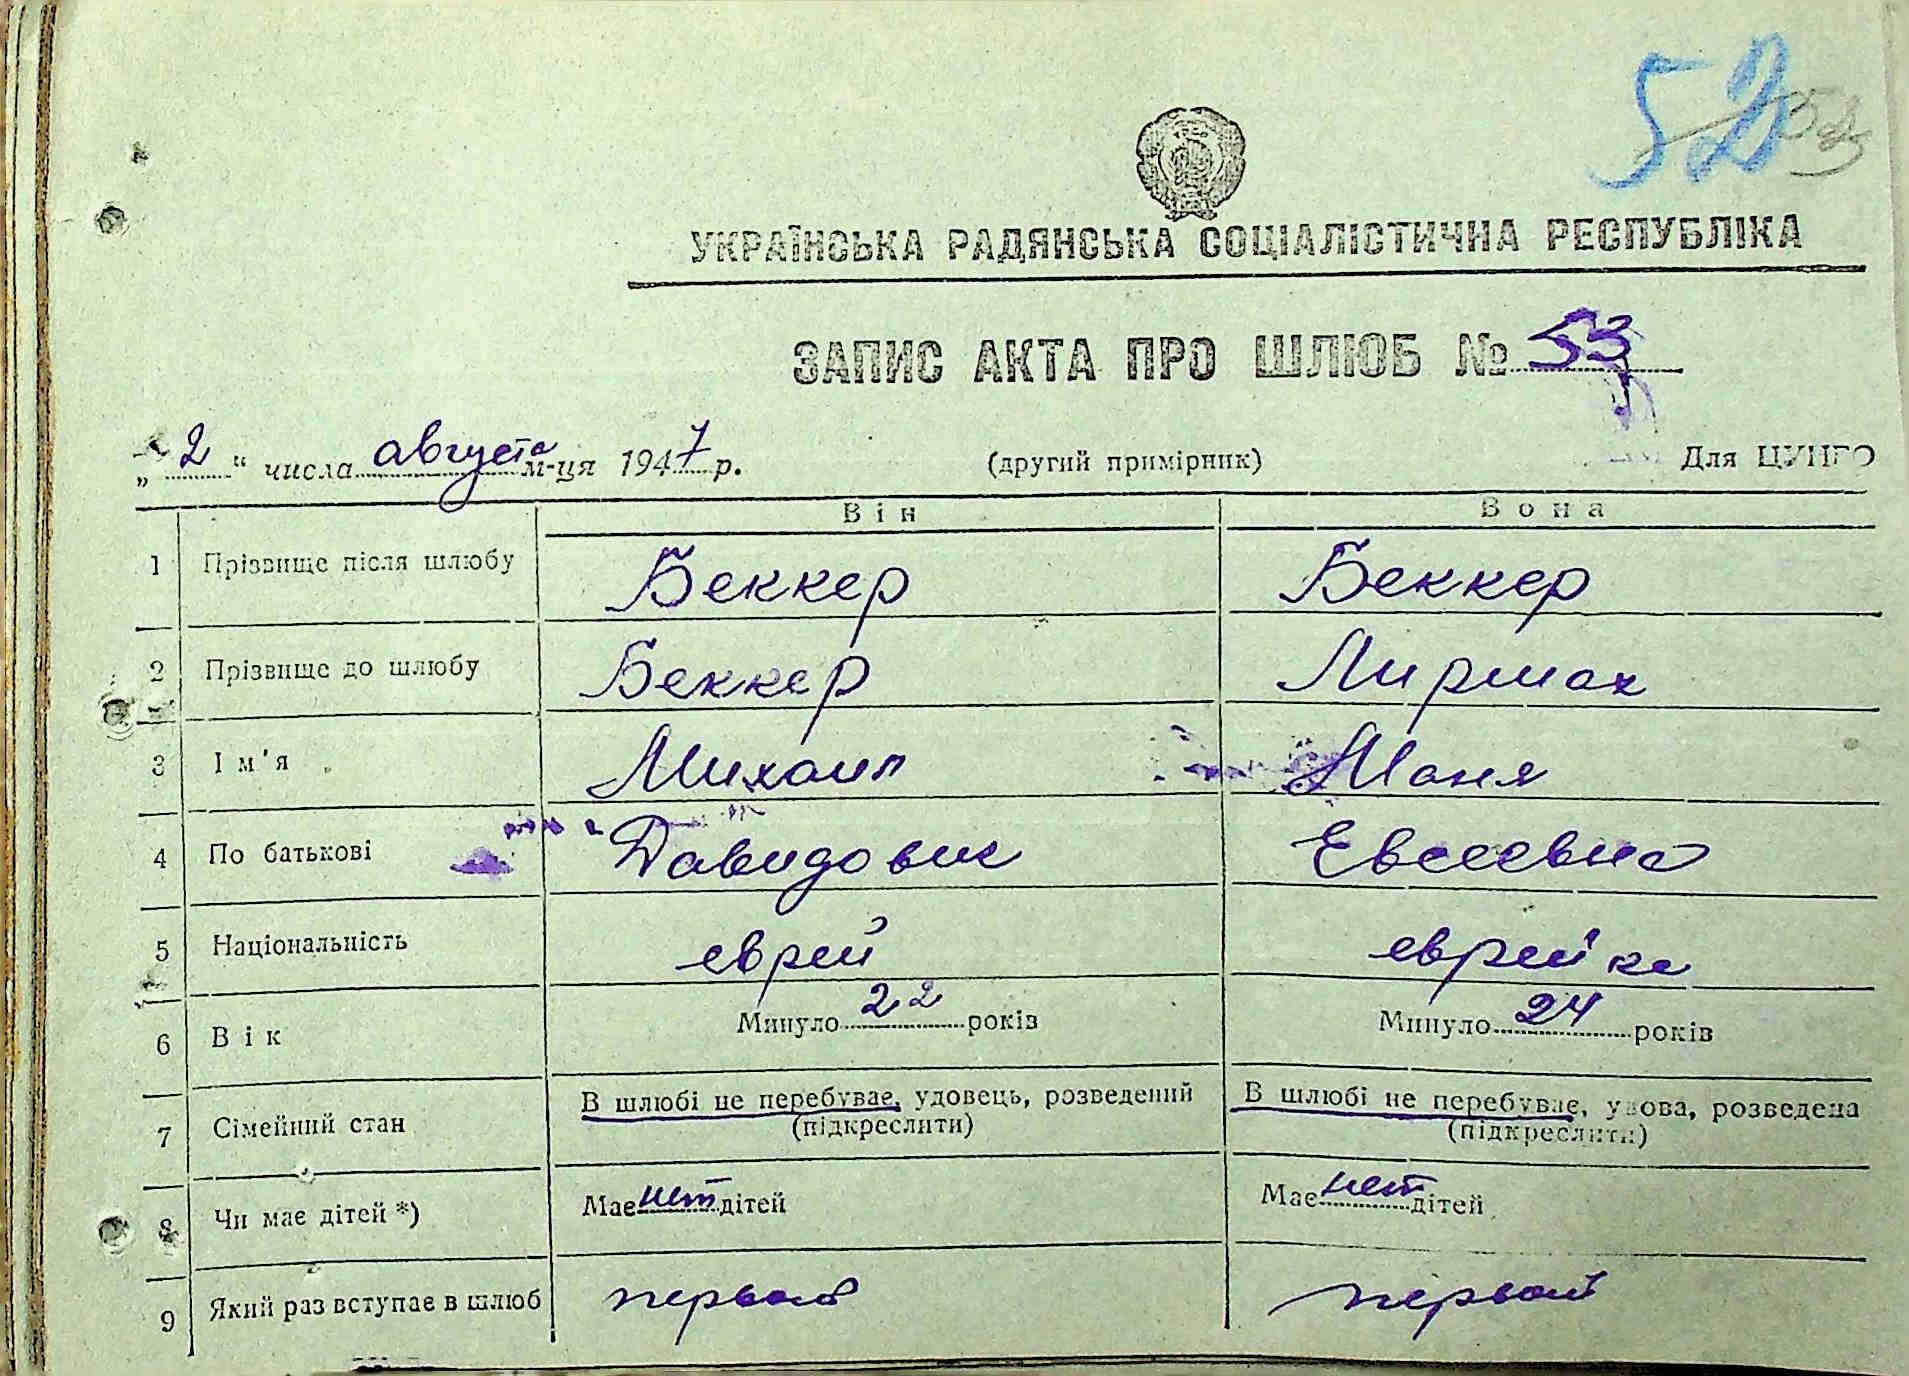 52
УКРАЇНСЬКА РАДЯНСЬКА СОЦІАЛІСТИЧНА РЕСПУБЛІКА
ЗАПИС АКТА ПРО ШЛЮБ № 53
„ 2 “ числа августа м-ця 1947 р. (другий примірник) Для ЦУНГО
Він Вона
1 Прізвище після шлюбу Беккер Беккер
2 Прізвище до шлюбу Беккер Лирмак
3 Ім'я Михаил Маня
4 По батькові Давидович Евсеевна
5 Національність еврей еврейка
6 Вік Минуло 22 років Минуло 24 років
7 Сімейний стан В шлюбі не перебуває, удовець, розведений (підкреслити) В шлюбі не перебуває, удова, розведена (підкреслити)
8 Чи має дітей *) Має нет дітей Має нет дітей
9 Який раз вступає в шлюб первый первый